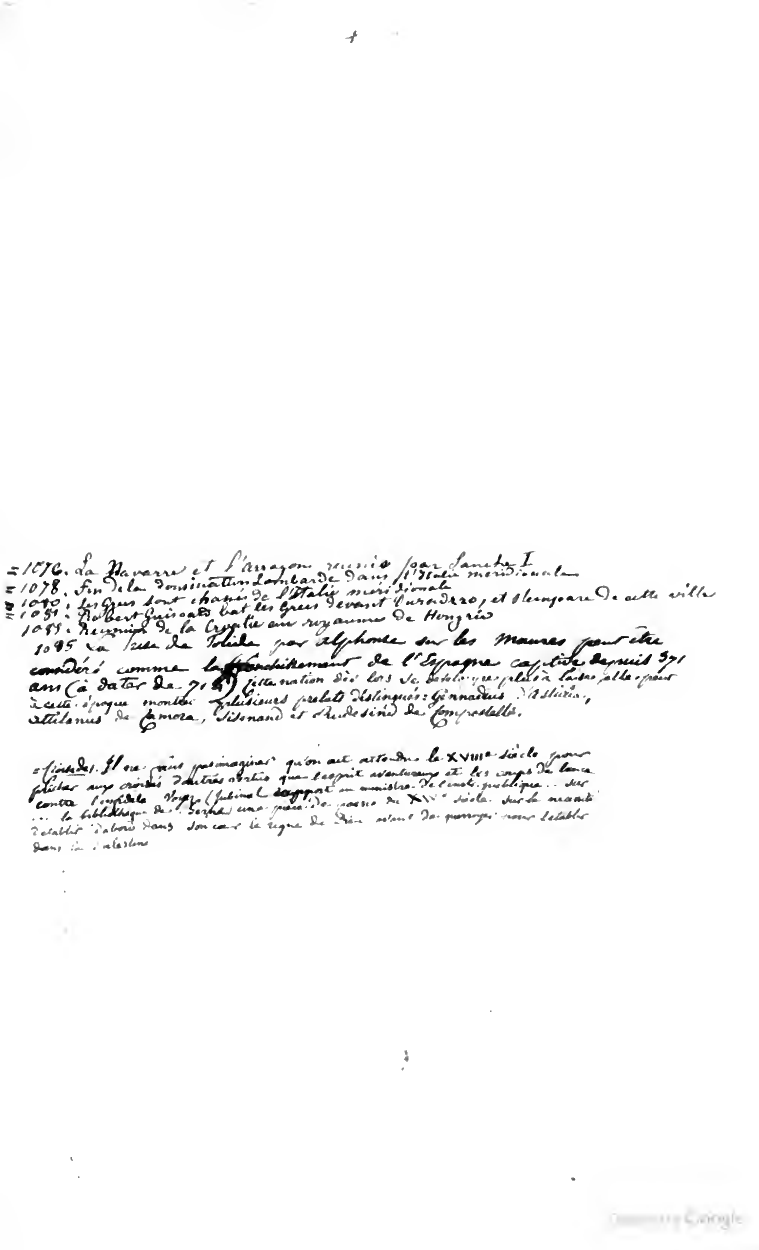 = 1076. La Navarre et l'arragon reunis par Sanche I
= 1078. Fin de la domination Lombarde dans l'Italie meridionale
= 1080. les Grecs sont chassés de l'Italie méridionale
= 1081. Robert Guiscard bat les Grecs devant Durazzo, et s'empare de cette ville
1081. Reunion de la Croatie au royaume de Hongrie
1085 La prise de Tolede par alphonse sur les Maures peut être
considéré comme l'affranchissement de l'Espagne captive depuis 371
ans (à dater de 714) cette nation dès lors se
à cette époque plusieurs prelats distingués: Gennadius d'asturia,
attilanus de Zamora, Sisnand et Rudesind de Compostelle.
= Croisades. Il ne faut pas imaginer qu'on ait attendu le XVIIIe siècle pour
prêcher aux croisés d'autres vertus que l'esprit aventureux et les coups de lance
contre l'infidèle Voyez (Jubinal rapport au ministre de l'instr. publique .. sur
... la bibliothèque de Berne) une pièce de poesie du siècle sur la necessité
d'etablir d'abord dans son cœur le règne de Dieu avant de guerroyer pour l'etablir
dans la Palestine